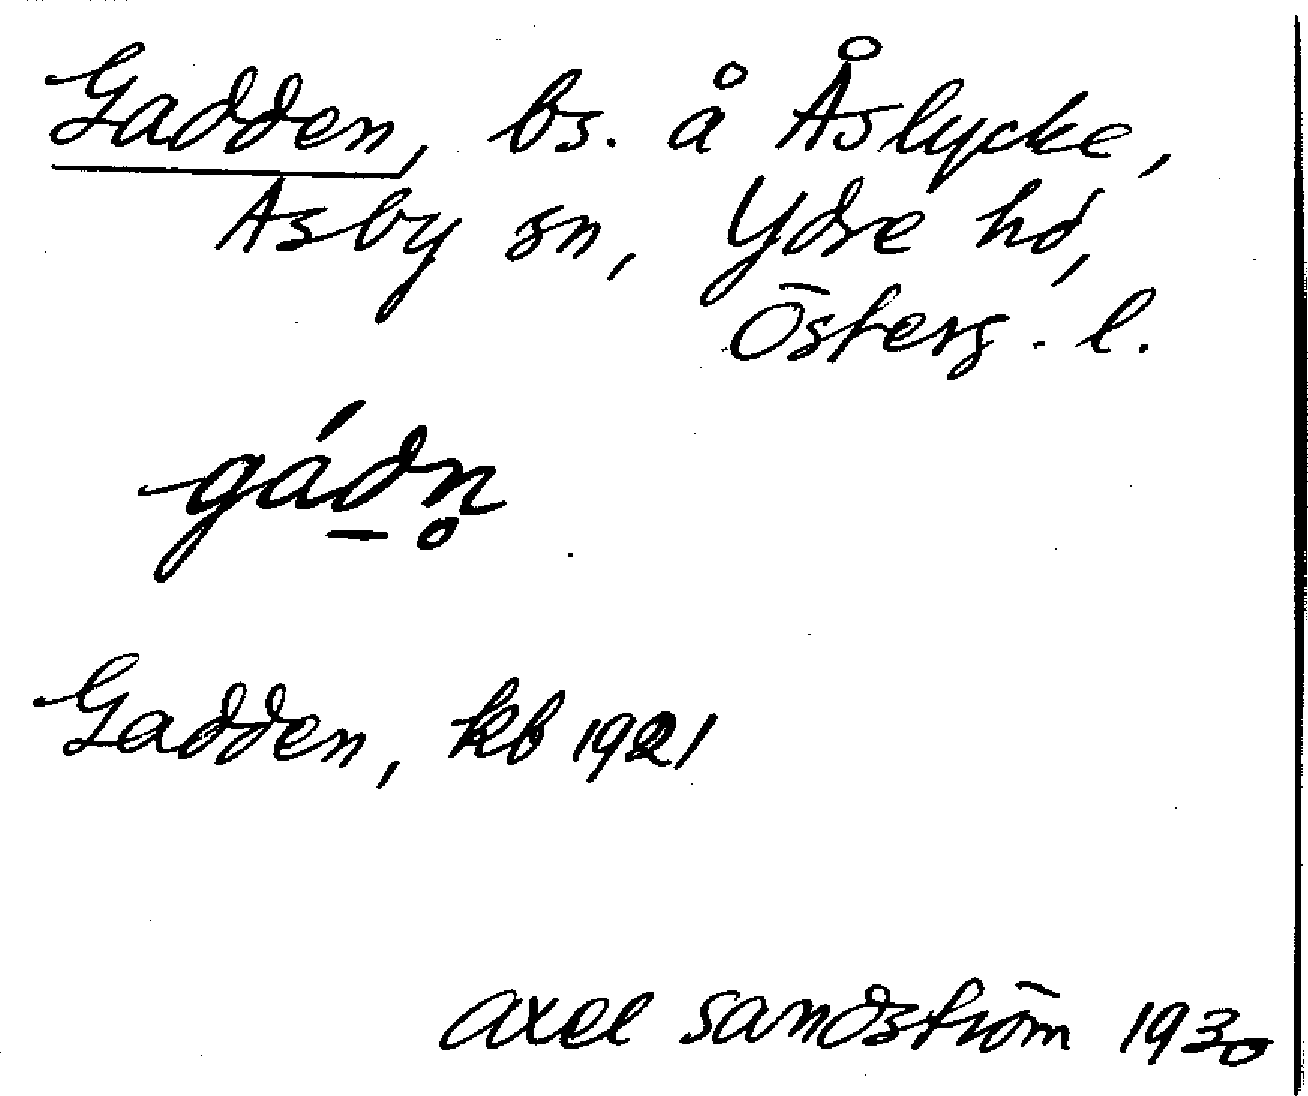 Gadden, bs. å Åslycke,
Asby sn, Ydre hd,
Österg. l.
gád̲n̥
Gadden, kb 1921
Axel Sandström 1930